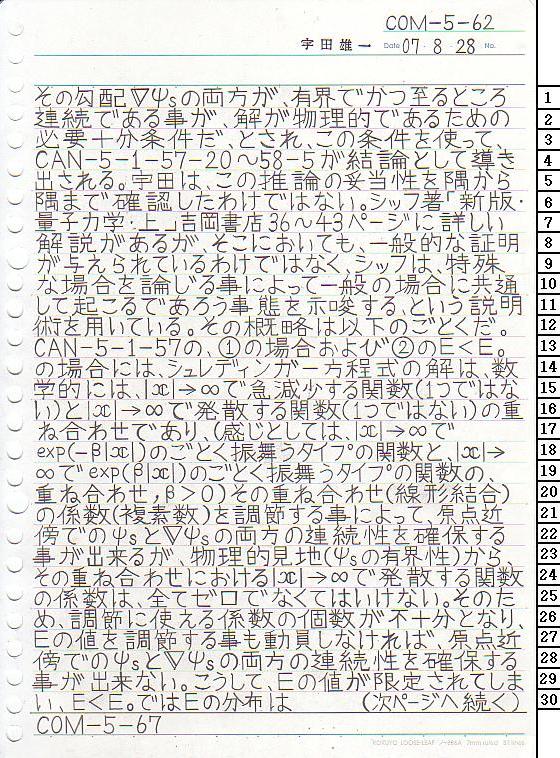 COM-5-62
宇田雄一 Date 07・8・28 No.
その勾配∇Ψsの両方が、有界でかつ至るところ
連続である事が、解が物理的であるための
必要十分条件だ、とされ、この条件を使って、
CAN-5-1-57-20～58-5が結論として導き
出される。宇田は、この推論の妥当性を隅から
隅まで確認したわけではない。シッフ著「新版・
量子力学:上」吉岡書店36～43ページに詳しい
解説があるが、そこにおいても、一般的な証明
が与えられているわけではなく、シッフは、特殊
な場合を論じる事によって一般の場合に共通
して起こるであろう事態を示唆する、という説明
術を用いている。その概略は以下のごとくだ。
CAN-5-1-57の、①の場合および②のE<E。
の場合には、シュレディンガー方程式の解は、数
学的には、|x|→∞で急減少する関数(1つではな
い)と|x|→∞で発散する関数(1つではない)の重
ね合わせであり、(感じとしては、|x|→∞で
exp(-β|x|)のごとく振舞うタイプの関数と、|x|→
∞でexp(β|x|)のごとく振舞うタイプの関数の、
重ね合わせ,β>0)その重ね合わせ(線形結合)
の係数(複素数)を調節する事によって、原点近
傍でのΨsと∇Ψsの両方の連続性を確保する
事が出来るが、物理的見地(Ψsの有界性)から、
その重ね合わせにおける|x|→∞で発散する関数
の係数は、全てゼロでなくてはいけない。そのた
め、調節に使える係数の個数が不十分となり、
Eの値を調節する事も動員しなければ、原点近
傍でのΨsと∇Ψsの両方の連続性を確保する
事が出来ない。こうして、Eの値が限定されてしま
い、E<E。ではEの分布は (次ページへ続く)
COM-5-67
KOKUYO LOOSE-LEAF ノ-836A 7mm ruled 31 lines
1
2
3
4
5
6
7
8
9
10
11
12
13
14
15
16
17
18
19
20
21
22
23
24
25
26
27
28
29
30